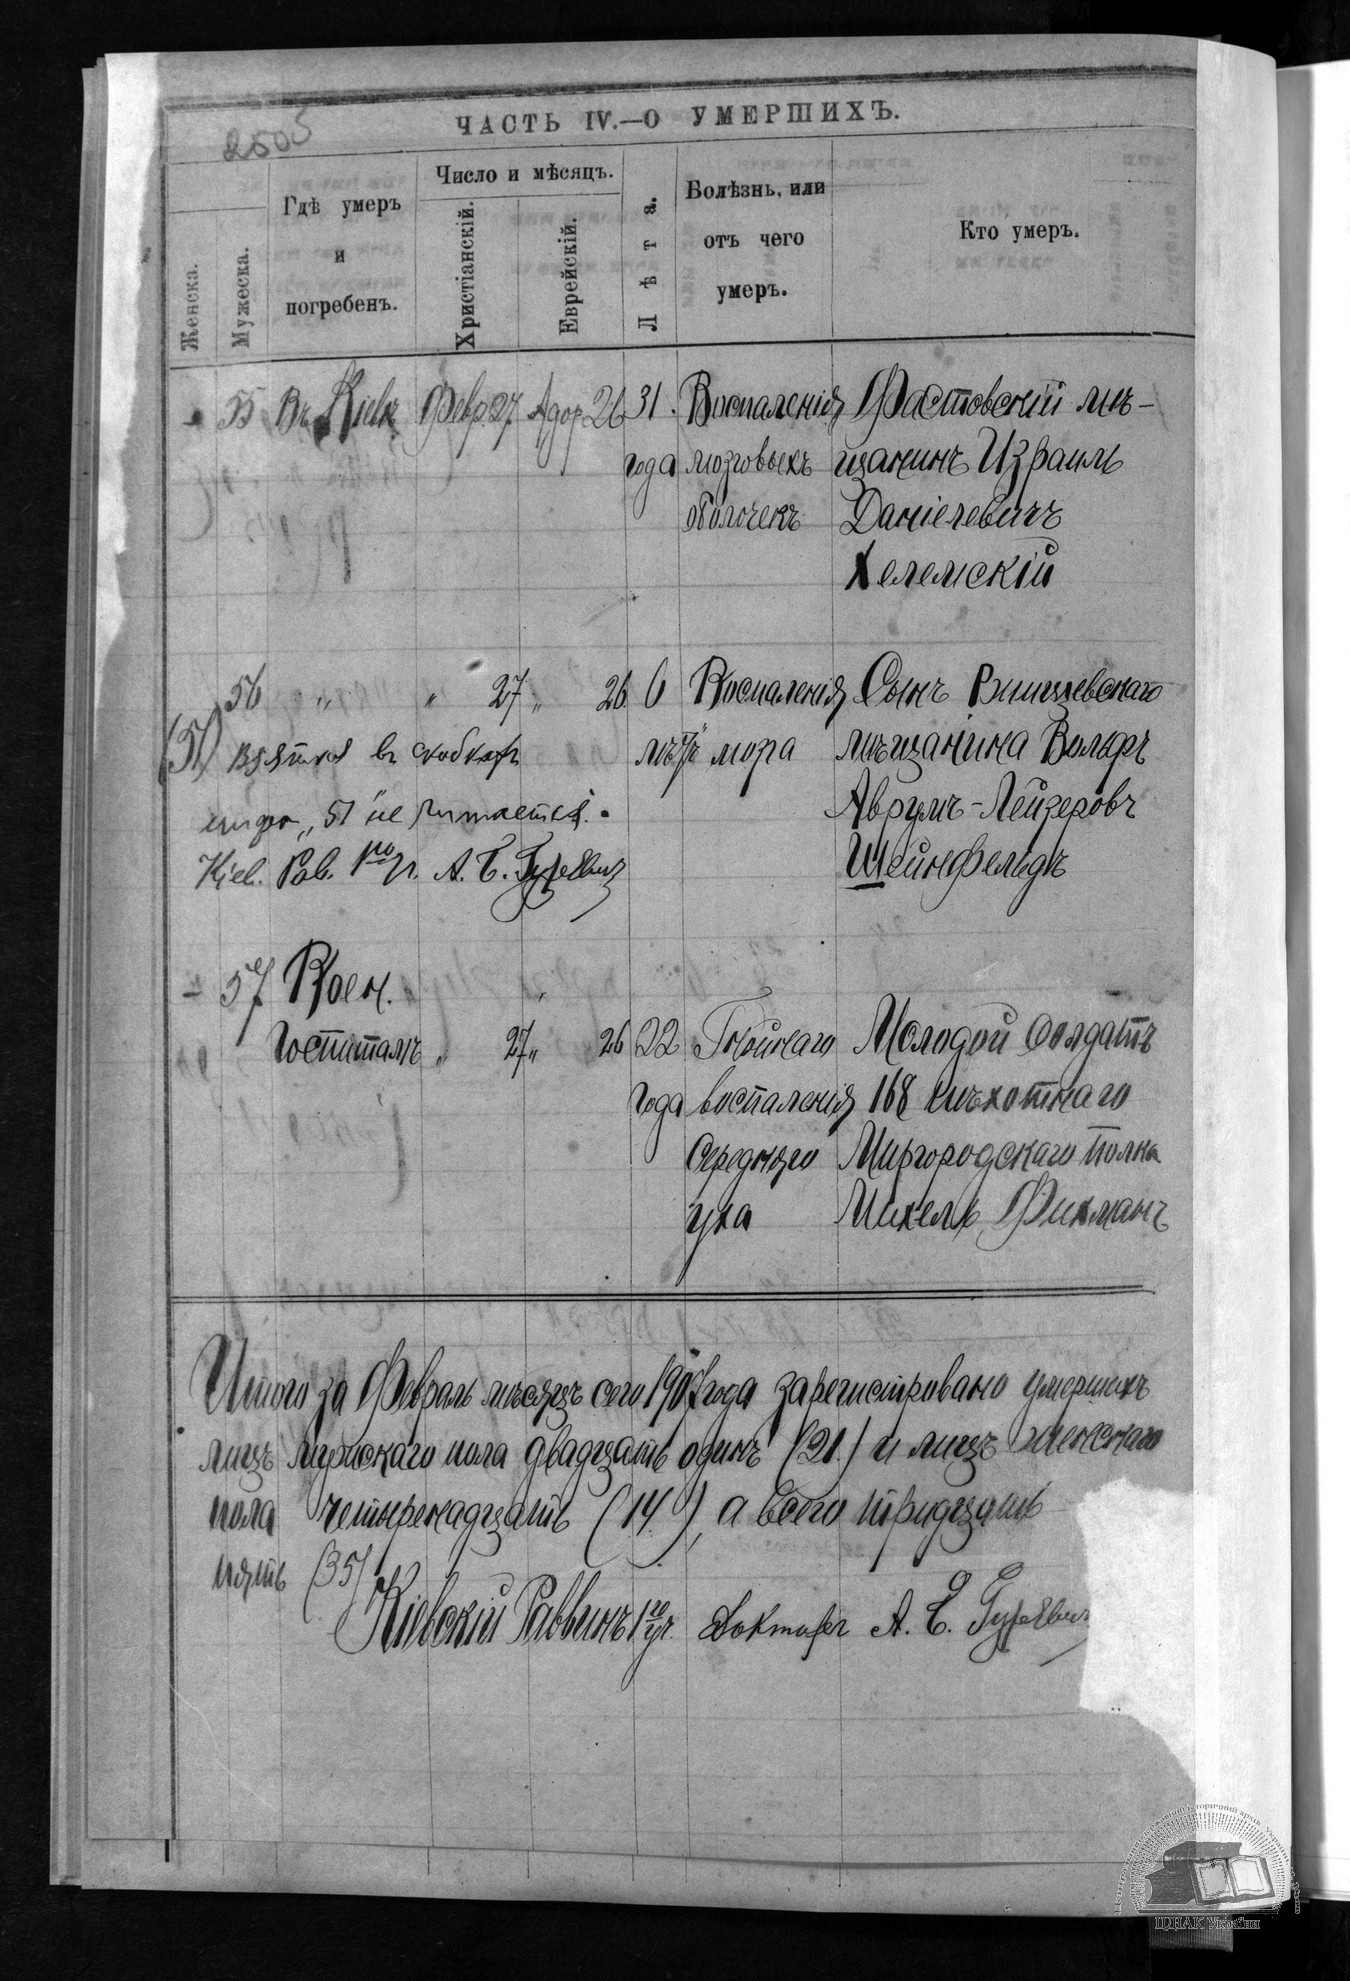 2505
ЧАСТЬ IV.—О УМЕРШИХЪ.
Женска.
Мужеска.
Гдѣ умеръ
и
погребенъ.
Число и мѣсяцъ.
Христіанскій.
Еврейскій.
Лѣта.
Болѣзнь, или
отъ чего
умеръ.
Кто умеръ.
- 55 Въ Кіевѣ Февр. 27 Адор. 26 31. Воспаленія Фастовскій мѣ-
года мозговыхъ щанинъ Израиль
оболочекъ Даніелевичъ
Хелемскій
56 " " 27 " 26 6 Воспаленія Сынъ
(51) взятая въ скобкахъ мозга мѣщанина Вольфъ
цифра „51" не читается.
Аврумъ-Лейзеровъ
Кіев. Рав. 1го уч. А. Б. Гуревичъ
Шейнфельдъ
- 57 Воен.
Госпиталь " 27 " 26 22 Гнойнаго Молодой Солдатъ
года воспаленія 168 пѣхотнаго
середняго Миргородскаго полка
уха Михель Фихманъ
Итого за Февраль мѣсяцъ сего 1907 года зарегистровано умершихъ
лицъ мужскаго пола двадцать одинъ (21) и лицъ женскаго
пола четырнадцать (14), а всего тридцать
пять (35)
Кіевскій Раввинъ 1го уч. Докторъ А. Б. Гуревичъ
ЦДІАК України